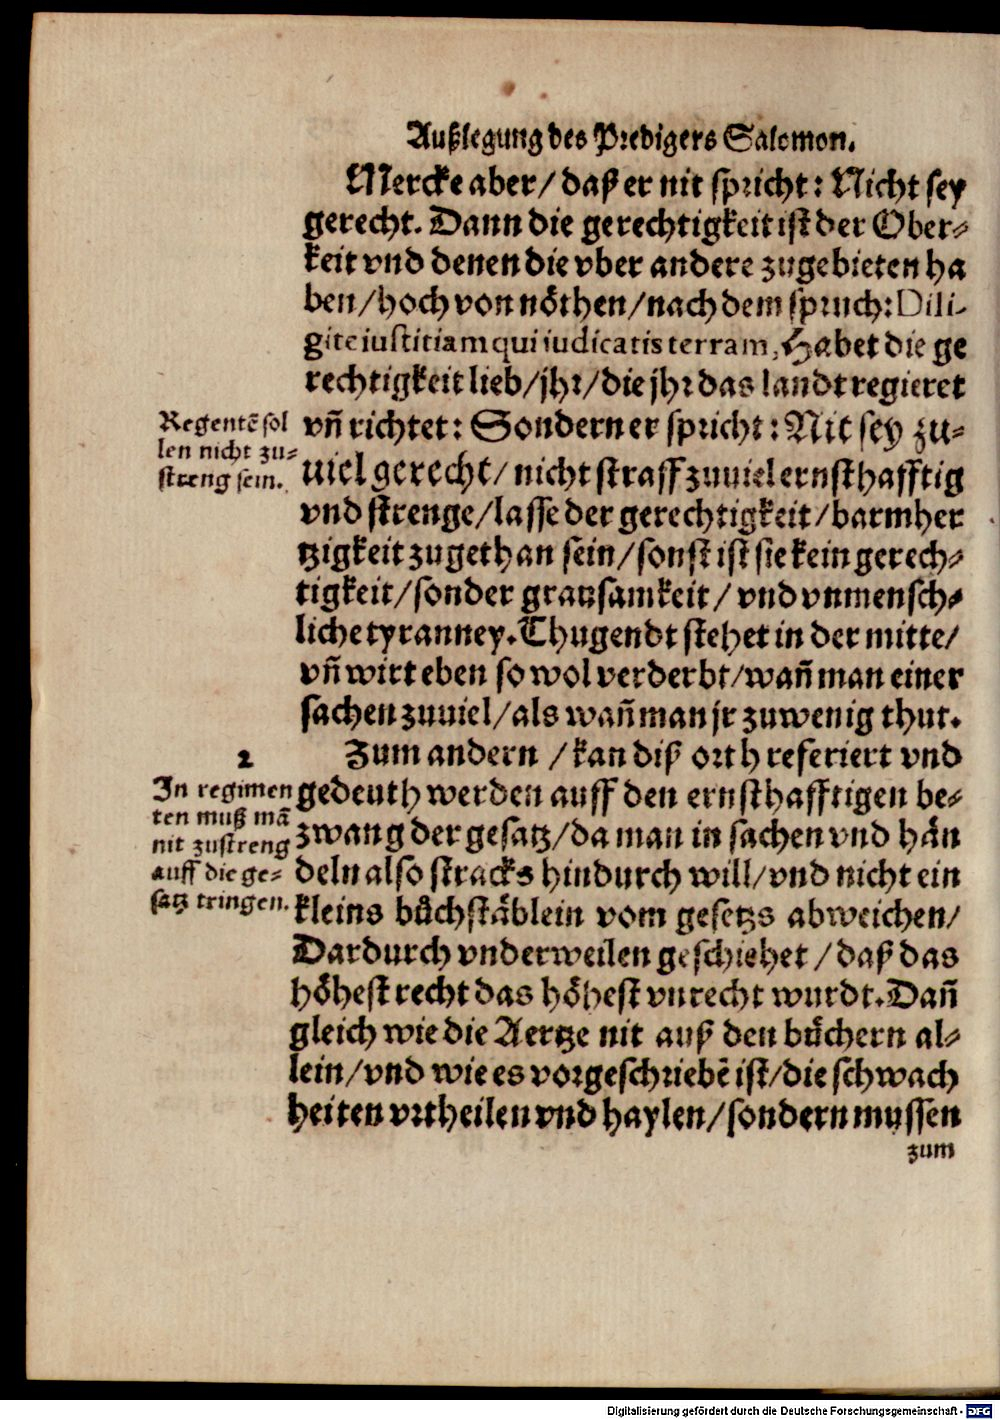 Außlegung des Predigers Salomon.
Mercke aber/ daß er nit spricht: Nicht sey
gerecht. Dann die gerechtigkeit ist der Ober-
keit vnd denen die vber andere zugebieten ha
ben/hoch von nöthen/nach dem spruch: Dili-
gite iustitiam qui iudicatis terram, Habet die ge
rechtigkeit lieb/jhr/die jhr das landt regieret
vñ richtet: Sondern er spricht: Nit sey zu-
uiel gerecht/ nicht straff zuuiel ernsthafftig
vnd strenge/lasse der gerechtigkeit/barmher
tzigkeit zugethan sein/sonst ist sie kein gerech-
tigkeit/sonder grausamkeit/ vnd vnmensch-
liche tyranney. Thugendt stehet in der mitte/
vñ wirt eben so wol verderbt/wañ man einer
sachen zuuiel/als wañ man jr zuwenig thut.
Zum andern /kan diß orth referiert vnd
gedeuth werden auff den ernsthafftigen be-
zwang der gesatz/da man in sachen vnd hän
deln also stracks hindurch will/vnd nicht ein
kleins bůchstäblein vom gesetzs abweichen/
Dardurch vnderweilen geschiehet /daß das
höhest recht das höhest vnrecht wurdt. Dañ
gleich wie die Aertze nit auß den bůchern al-
lein/vnd wie es vorgeschriebẽ ist/die schwach
heiten vrtheilen vnd haylen/sondern mussen
zum
Regentẽ sol
len nicht zu-
streng sein.
2
In regimen
ten muß mã
nit zustreng
auff die ge-
satz tringen.
Digitalisierung gefördert durch die Deutsche Forschungsgemeinschaft - DFG